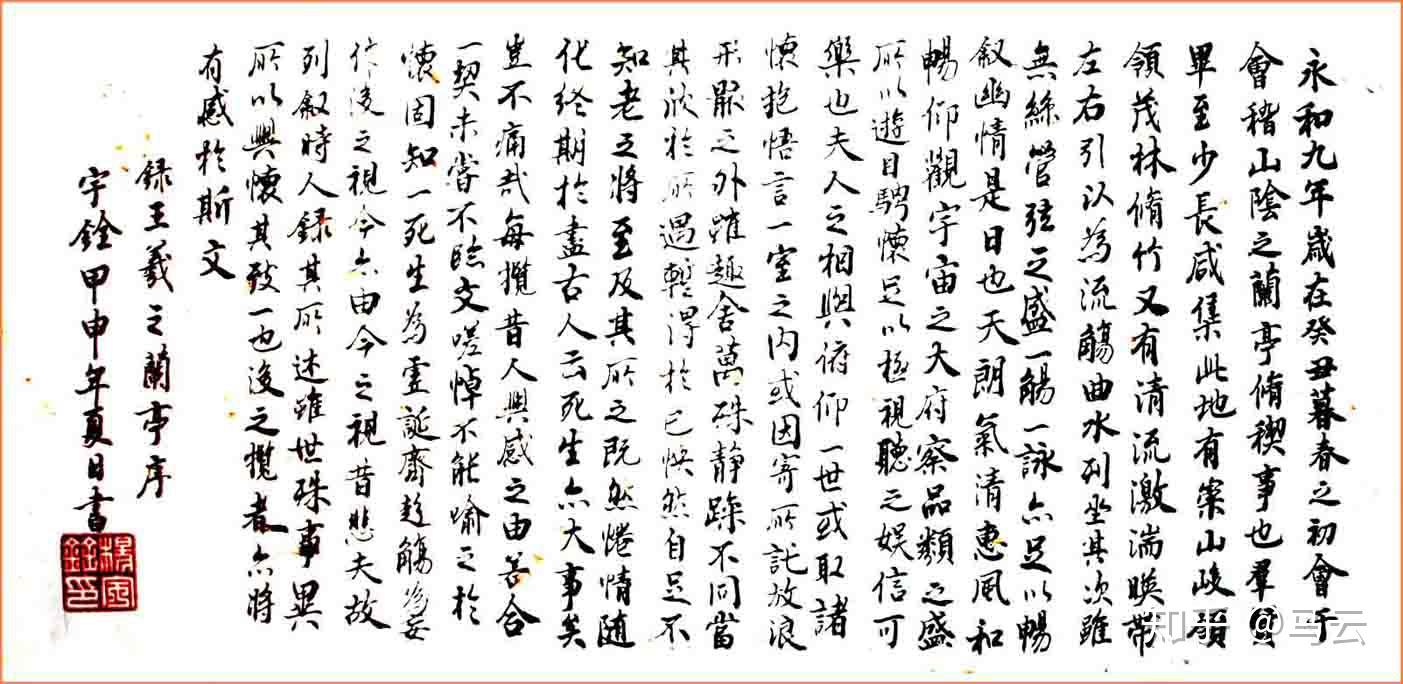 永和九年歲在癸丑暮春之初會于
會稽山陰之蘭亭脩稧事也羣賢
畢至少長咸集此地有崇山峻領
領茂林脩竹又有清流激湍暎帶
左右引以為流觴曲水列坐其次雖
無絲管弦之盛一觴一詠亦足以暢
敘幽情是日也天朗氣清惠風和
暢仰觀宇宙之大府察品類之盛
所以遊目騁懷足以極視聽之娛信可
樂也夫人之相與俯仰一世或取諸
懷抱悟言一室之內或因寄所託放浪
形骸之外雖趣舍萬殊静躁不同當
其欣於所遇蹔得於己怏然自足不
知老之將至及其所之既然惓情隨
化終期於盡古人云死生亦大事矣
豈不痛哉每攬昔人興感之由若合
一契未嘗不臨文嗟悼不能喻之於
懷固知一死生為虛誕齊彭觴為妄
作後之視今亦由今之視昔悲夫故
列敘時人錄其所述雖世殊事異
所以興懷其致一也後之攬者亦將
有感於斯文
録王羲之蘭亭序
宇銓甲申年夏日書
楊宇銓印
知乎 @马云